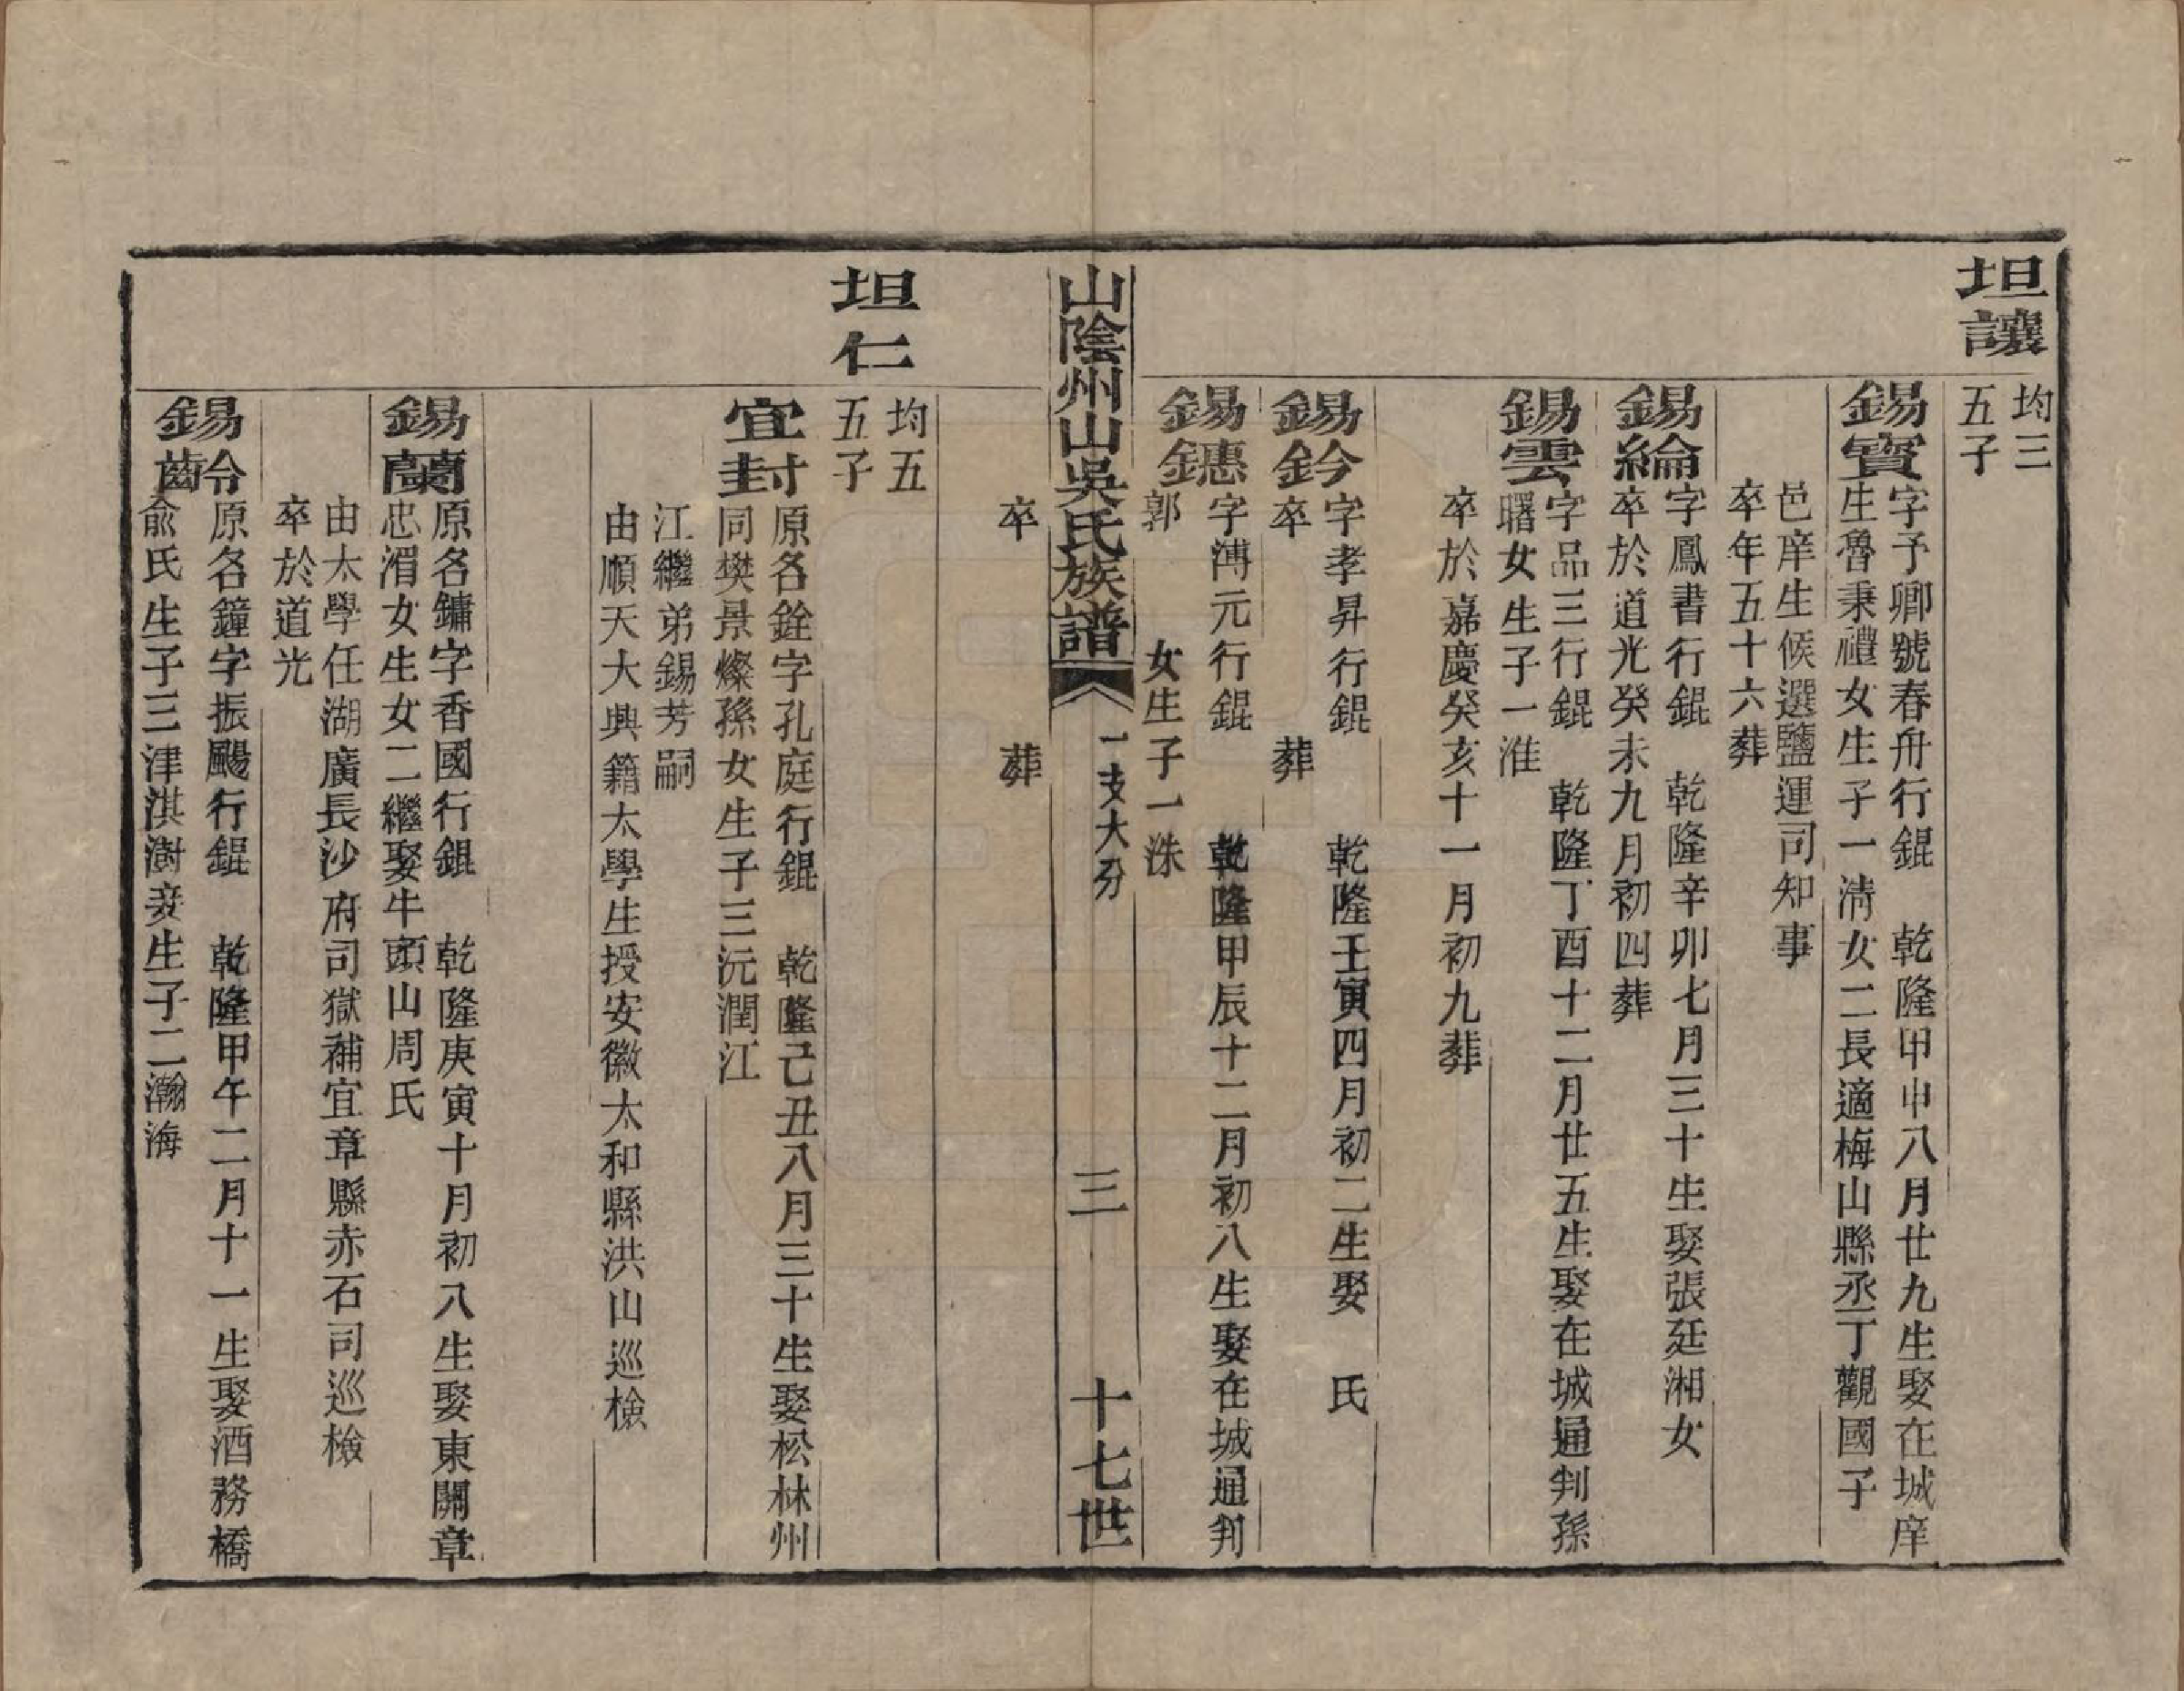 坦讓
均三
五子
錫寶
字予卿號春舟行錕　乾隆甲申八月廿九生娶在城庠
生魯秉禮女生子一淸女二長適梅山縣丞丁觀國子
邑庠生候選鹽運司知事
卒年五十六葬
錫綸
字鳳書行錕　乾隆辛卯七月三十生娶張廷湘女
卒於道光癸未九月初四葬
錫雲
字品三行錕　乾隆丁酉十二月廿五生娶在城通判孫
曙女生子一淮
卒於嘉慶癸亥十一月初九葬
錫鈐
字孝昇行錕　　乾隆壬寅四月初二生娶　氏
卒　　　　葬
錫鏸
字溥元行錕　　乾隆甲辰十二月初八生娶在城通判
郭　　女生子一洙
山陰州山吳氏族譜
一支大分
三
十七世
卒　　　　葬
坦仁
均五
五子
宜封
原名銓字孔庭行錕　乾隆己丑八月三十生娶松林州
同樊景燦孫女生子三沅潤江
江繼弟錫芳嗣
由順天大興籍太學生授安徽太和縣洪山巡檢
錫蘭
原名鏞字香國行錕　乾隆庚寅十月初八生娶東關章
忠湄女生女二繼娶牛頭山周氏
由太學任湖廣長沙府司獄補宜章縣赤石司巡檢
卒於道光
錫齡
原名鐘字振颺行錕　乾隆甲午二月十一生娶酒務橋
俞氏生子三津淇澍妾生子二瀚海